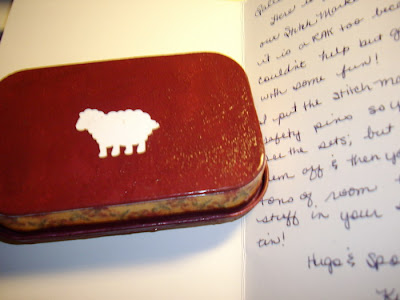 Here is
our Stitch Marke
it is a RAK too beca
couldn't help but g
with some fun!
I put the Stitch-ma
safety pins so y
see the sets; but
em off & then you
tons of room f
stuff in your s
tin!
Hugs & Spo